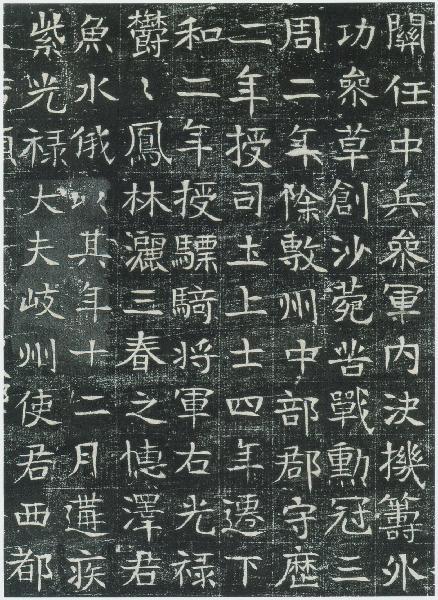 關任中兵叅軍內決機籌外
功叅草創沙菀苦戰勳冠三
周二年除敷州中部郡守歷
二年授司土上士四年遷下
和二年授驃騎將軍右光祿
欝〻鳳林灑三春之憓澤君
魚水俄以其年十二月遘疾
紫光祿大夫岐州使君西都